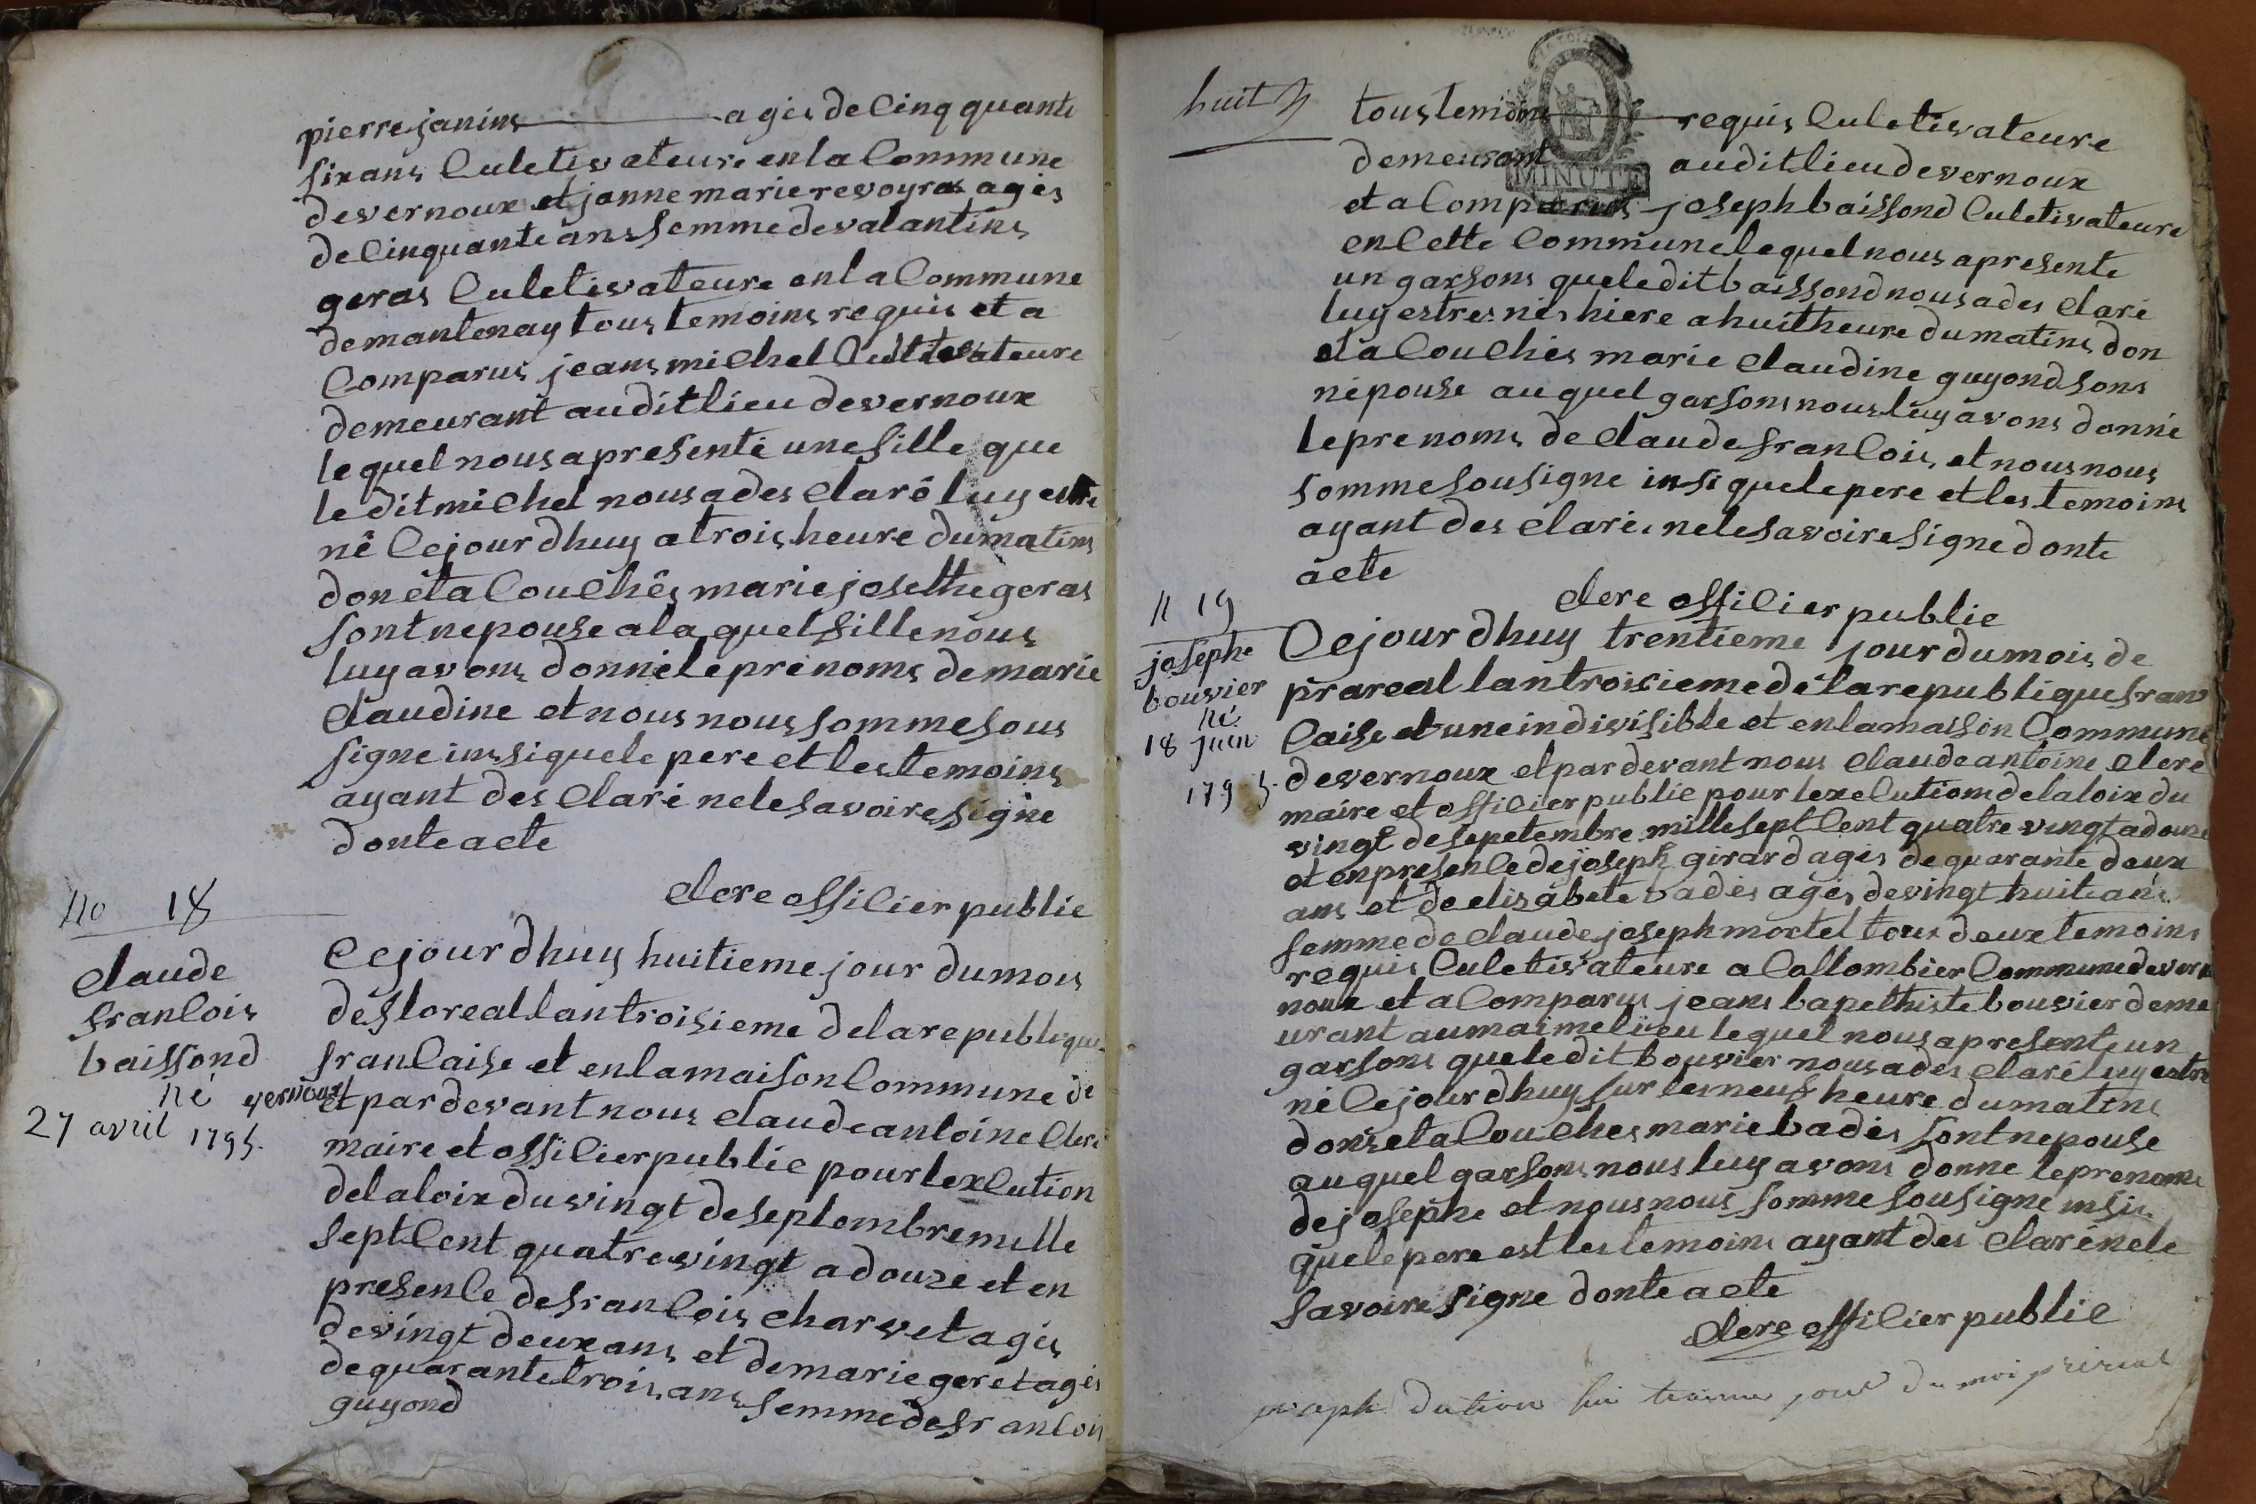 pierre janins agés de Cinq quante
six ans Culetivateure en la Commune
de vernoux et janne marie revoyras agés
de Cinquante ans femme de valantins
geras Culetivateure en la Commune
de mantenay tous temoins requis et a
Comparus jeans michel Cultivateure
demeurant audit lieu de vernoux
lequel nous a presenté une fille que
ledit michel nous a des Claré luy estre
né Cejourdhuy a trois heure du matins
don et a Couchés marie josette geras
sont nepouse a la quel fille nous
luy avons donné le prenoms de marie
Claudine et nous nous somme sous
signe insi que le pere et les temoins
ayant des Claré ne le savoire signé
donte acte
Clere offilier public
No 18
Claude
franCois
baissond
né vernoux
27 avril 1795.
Cejourdhuy huitieme jour du mois
de floreal lan troisieme de la republique
franCaise et en la maison Commune de
et par devant nous Claude antoine Clere
maire et offiCier public pour lexCution
de la loix du vingt de septembre mille
sept Cent quatre vingt a douze et en
presenCe de franCois Charvet agés
de vingt deux ans et de marie geret agés
de quarante trois ans femme de franCois
guyond
huit
tous temoins requis Culetivateure
demeurant audit lieu de vernoux
MINUTE
et a Comparus joseph baissond Culetivateure
en Cette Commune lequel nous a presente
un garsons que ledit baissond nous a des Claré
luy estre nés hiere a huit heure du matins don
et a Couchés marie Claudine guyond sons
népouse au quel garsons nous luy avons donné
le prenoms de Claude franCois et nous nous
somme sousigne insi que le pere et les temoins
ayant des Claré ne le savoire signe donte
acte
Clere offiCier public
N 19
josephe
bouvier
né
18 juin
1795.
Cejourdhuy trentieme jour du mois de
prareal lan troisieme de la republique fran
Caise et une indivisible et en la maison Commune
de vernoux et par devant nous Claude antoine Clere
maire et offiCier public pour lexeCutions de la loix du
vingt de sepetembre mille sept Cent quatre vingt a douze
et en presenCe de joseph girard agés de quarante deux
ans et de elisabete badés agés de vingt huit ans
femme de Claude joseph mortel tous deux temoins
requis Culetivateure a Collombier Commune de ver
noux et a Comparus jeans bapethiste bouvier deme
urant au maime lieu lequel nous a presente un
garsons que ledit bouvier nous a des Claré luy estre
né Cejourdhuy sur les neuf heure du matins
dons et a Couches marie badés sont nepouse
au quel garsons nous luy avons donne le prenoms
de josephe et nous nous somme sousigne insi
que le pere est les temoins ayant des Claré ne le
savoire signe donte acte
Clere offiCier public
jour du moi